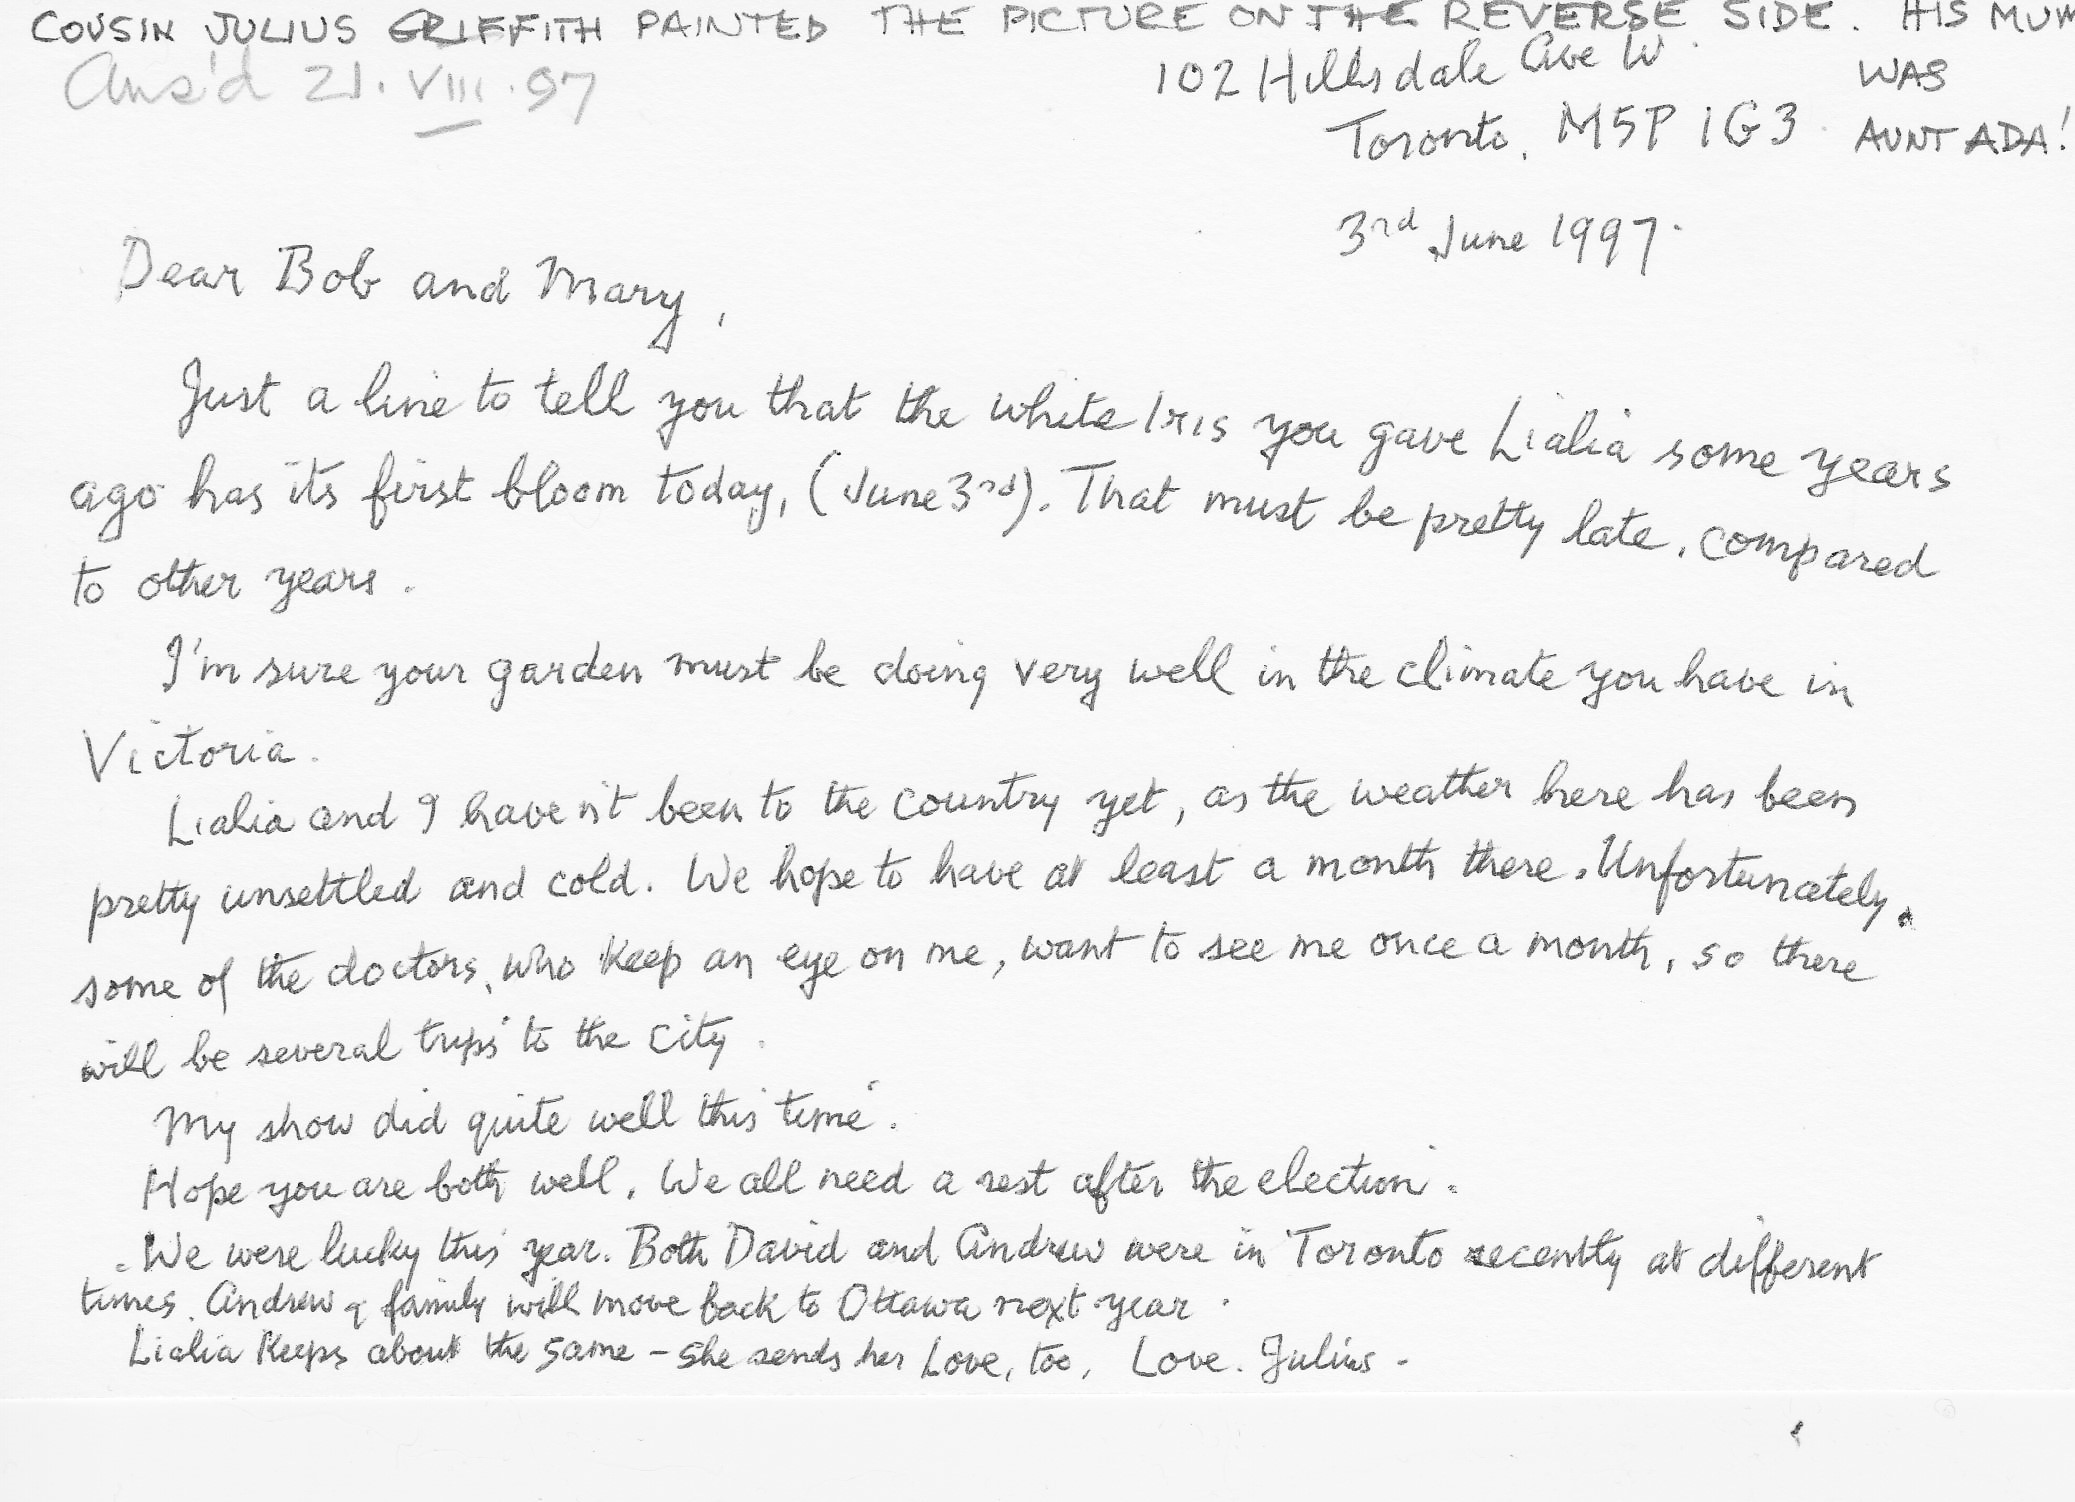 COUSIN JULIUS GRIFFITH PAINTED THE PICTURE ON THE REVERSE SIDE. HIS MUM
WAS
AUNT ADA!
Ans'd 21.VIII.97
102 Hillsdale Ave W.
Toronto. M5P 1G3
3rd June 1997.
Dear Bob and Mary,
Just a line to tell you that the white Iris you gave Lialia some years
ago has its first bloom today, (June 3rd). That must be pretty late, compared
to other years.
I'm sure your garden must be doing very well in the climate you have in
Victoria.
Lialia and I haven't been to the country yet, as the weather here has been
pretty unsettled and cold. We hope to have at least a month there. Unfortunately,
some of the doctors, who keep an eye on me, want to see me once a month, so there
will be several trips to the city.
My show did quite well this time.
Hope you are both well. We all need a rest after the election.
We were lucky this year. Both David and Andrew were in Toronto recently at different
times. Andrew & family will move back to Ottawa next year.
Lialia keeps about the same - she sends her Love, too, Love. Julius -